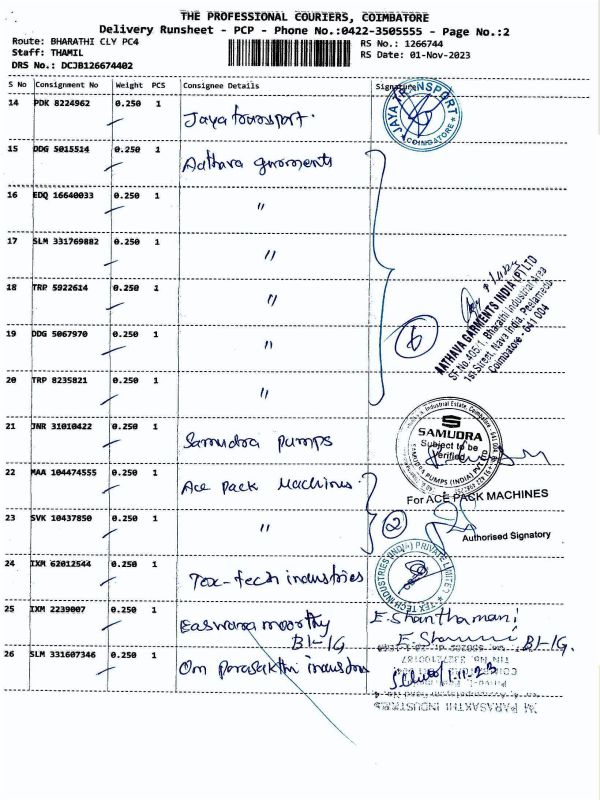 THE PROFESSIONAL COURIERS, COIMBATORE
Delivery Runsheet - PCP - Phone No.:0422-3505555 - Page No.:2
Route: BHARATHI CLY PC4
RS No.: 1266744
Staff: THAMIL
RS Date: 01-Nov-2023
DRS No.: DCJB126674402
S No Consignment No Weight PCS Consignee Details Signature
14 PDK 8224962 0.250 1 Jaya transport.
JAYA TRANSPORT
COIMBATORE
15 DDG 5015514 0.250 1 Aathava garments
16 EDQ 16640033 0.250 1 "
17 SLM 331769882 0.250 1 "
18 TRP 5922614 0.250 1 "
19 DDG 5067970 0.250 1 "
6
AATHAVA GARMENTS INDIA (P) LTD
SF No.405/1, Bharathi Industrial Area
1st Street, Nava India, Peelamedu
Coimbatore - 641 004
20 TRP 8235821 0.250 1 "
21 JNR 31010422 0.250 1 Samudra pumps
SAMUDRA
Subject to be
Verified
SAMUDRA PUMPS (INDIA) PVT LTD
22 MAA 104474555 0.250 1 Ace pack Machines.
For ACE PACK MACHINES
23 SVK 10437850 0.250 1 "
2
Authorised Signatory
24 IXM 62012544 0.250 1 Tex-tech industries
TEX TECH INDUSTRIES (INDIA) PRIVATE LIMITED
25 IXM 2239007 0.250 1 Easwara moorthy
B1-1G
E.Shanthamani
B1-1G.
26 SLM 331607346 0.250 1 Om parasakthi industries
1-11-23
OM PARASAKTHI INDUSTRIES